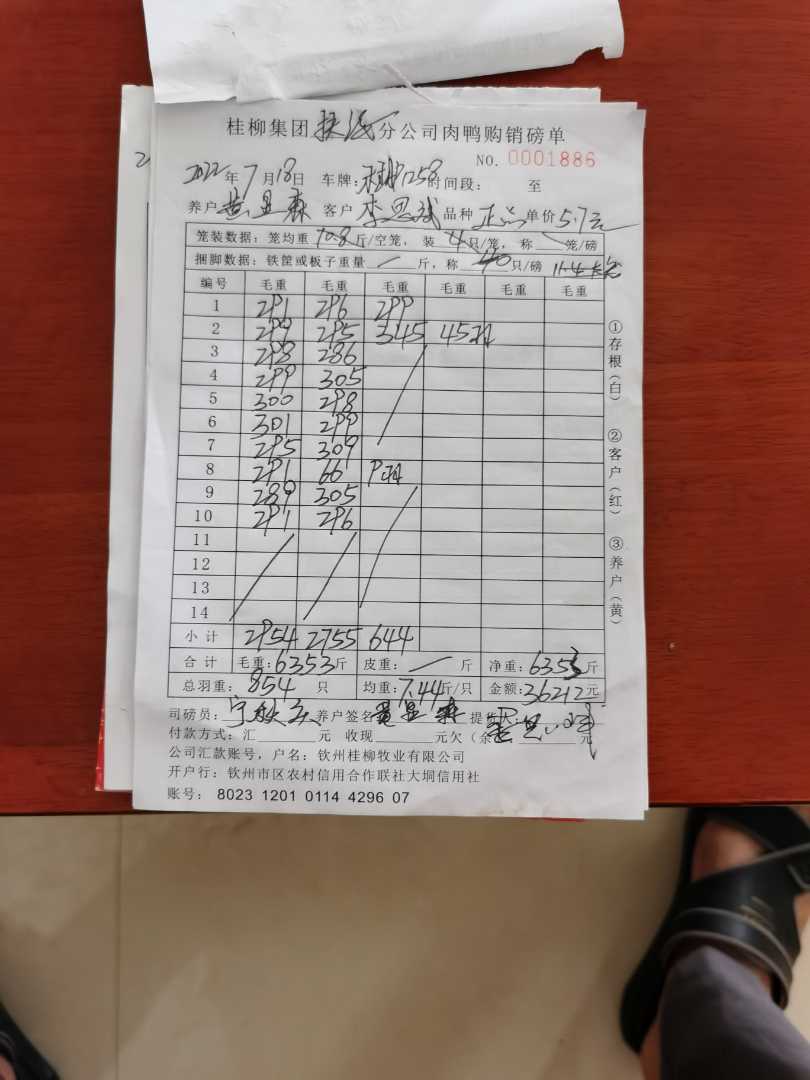 桂柳集团 分公司肉鸭购销磅单
NO. 0001886
2022年7月18日 车牌: 1258 时间段: 至
养户 黄显森 客户 李思斌 品种 正品 单价 5.7元
笼装数据: 笼均重 10.8 斤/空笼, 装 4 只/笼, 称 笼/磅
捆脚数据: 铁筐或板子重量 斤, 称 40 只/磅 11.4
编号 毛重 毛重 毛重 毛重 毛重 毛重
1 291 296 299
2 299 295 345 45只
3 298 286
4 299 305
5 300 298
6 301 299
7 295 309
8 291 66 9只
9 289 305
10 291 296
11
12
13
14
小计 2954 2755 644
合计 毛重: 6353斤 皮重: 斤 净重: 6353斤
总羽重: 854 只 均重: 7.44斤/只 金额: 36212元
司磅员: 养户签名 黄显森 提货人:
付款方式: 汇 元 收现 元欠(余 元
公司汇款账号, 户名: 钦州桂柳牧业有限公司
开户行: 钦州市区农村信用合作联社大垌信用社
账号: 8023 1201 0114 4296 07
①存根(白) ②客户(红) ③养户(黄)